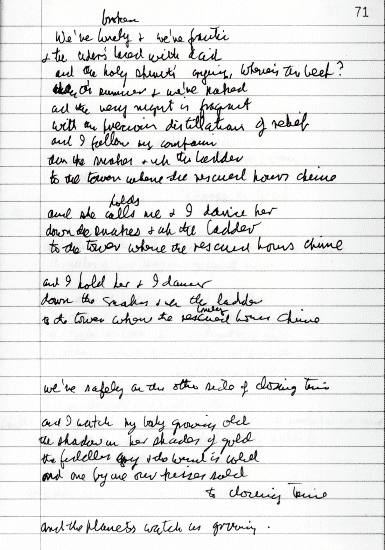 71
broken
We're lonely & we're frantic
& the cider's laced with acid
and the holy spirit's crying, where's the beef?
it's summer & we're naked
and the very night is fragrant
with a precious distillation of relief
and I follow my companion
down the snakes & up the ladder
to the tower where the rescued hours chime
holds
and she calls me & I dance her
down the snakes & up the ladder
to the tower where the rescued hours chime
and I hold her & I dance
down the snakes & up the ladder
to the tower where the rescued hours chime
we're safely on the other side of closing time
and I watch my baby growing old
the shadow in her shades of gold
the fiddlers & the wind is cold
and one by one our kisses sold
to closing time
and the planets watch us growing.